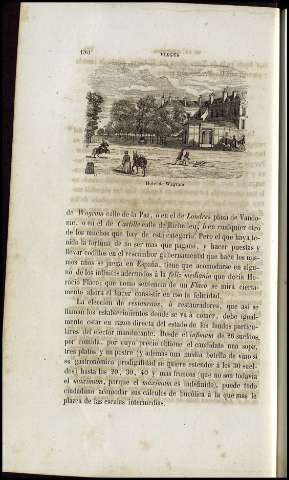 VIAGES
Hotel de Wagram
de Wagram calle de la Paz, ó en el de Londres plaza de Vando-
me, ó en el de Castille calle de Richelieu, ó en cualquier otro
de los muchos que hay de esta categoría. Pero el que haya te-
nido la fortuna de no ser mas que pagano, y hacer puestas y
llevar codillos en el resumbar gubernamental que hace los mis-
mos años se juega en España, tiene que acomodarse en algu-
no de los infinitos adornados á la feliz mediania que decia Ho-
racio Flaco; que como sentencia de un Flaco se mira cierta-
mente ahora el hacer consistir en eso la felicidad.
La eleccion de restaurant, ó restauradores, que asi se
llaman los establecimientos donde se vá á comer, debe igual-
mente estar en razon directa del estado de los fondos particu-
lares del elector manducante. Desde el infimum de 26 sueldos
por comida, por cuyo precio obtiene el candidato una sopa,
tres platos y un postre (y ademas una media botella de vino si
su gastronómica prodigalidad se quiere estender á los 30 suel-
dos) hasta los 20, 30, 40 y mas francos (que no son todavia
el maximum, porque el maximum es indefinido), puede todo
ciudadano acomodar sus cálculos de bucólica á la que mas le
plazca de las escalas intermedias.